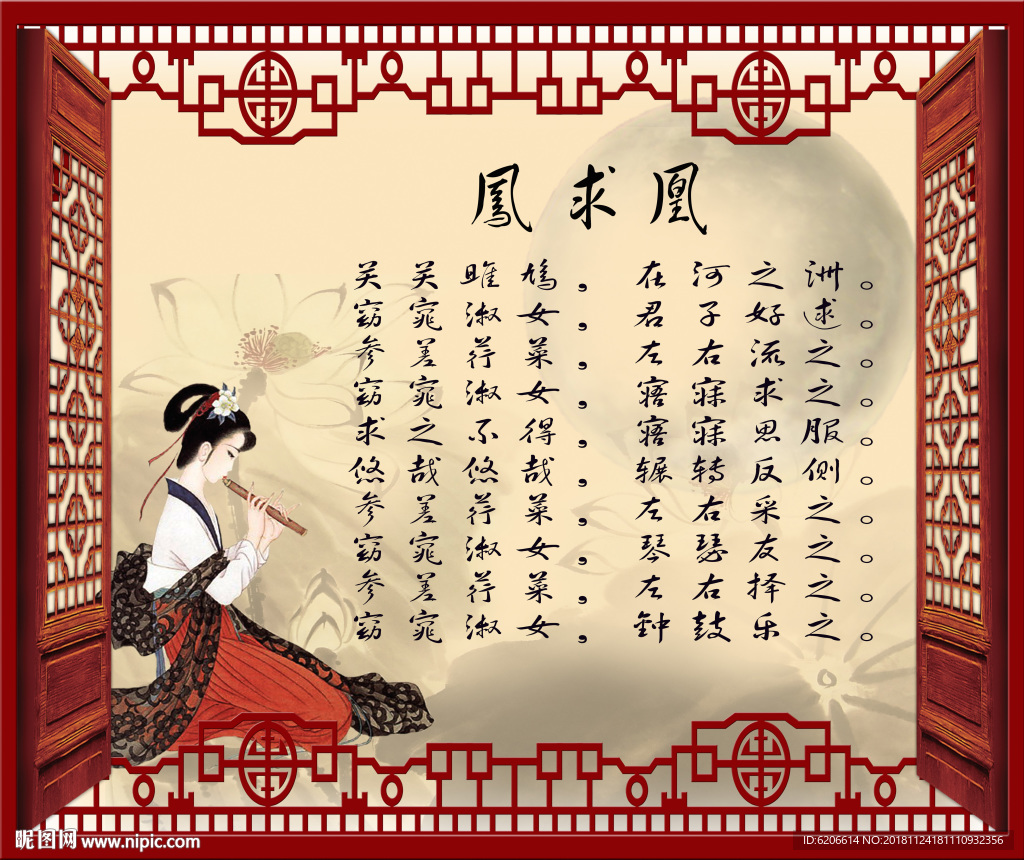 鳳求凰
关关雎鸠，在河之洲。
窈窕淑女，君子好逑。
参差荇菜，左右流之。
窈窕淑女，寤寐求之。
求之不得，寤寐思服。
悠哉悠哉，辗转反侧。
参差荇菜，左右采之。
窈窕淑女，琴瑟友之。
参差荇菜，左右择之。
窈窕淑女，钟鼓乐之。
昵图网 www.nipic.com
ID:6206614 NO:20181124181110932356